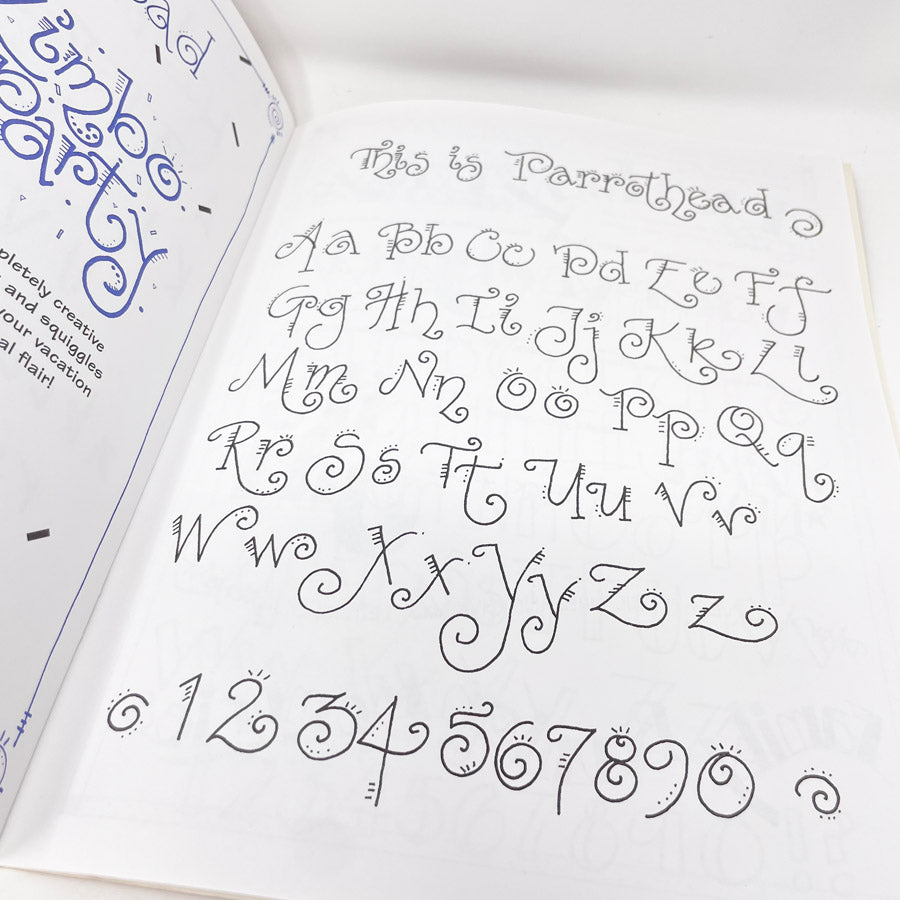 Limbo
Party
creative
and squiggles
your vacation
flair!
This is Parrothead
Aa Bb Cc Dd Ee Ff
Gg Hh Ii Jj Kk Ll
Mm Nn Oo Pp Qq
Rr Ss Tt Uu Vv
Ww Xx Yy Zz
1234567890